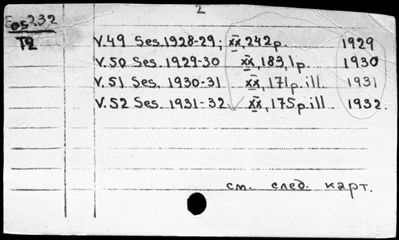 2
232
T2
V.49 Ses. 1928-29; xx, 242p. 1929
V.50 Ses. 1929-30 xx, 183, 1p. 1930
V.51 Ses. 1930-31 xx, 171p. ill. 1931
V.52 Ses. 1931-32 xx, 175p. ill. 1932.
см. след. карт.